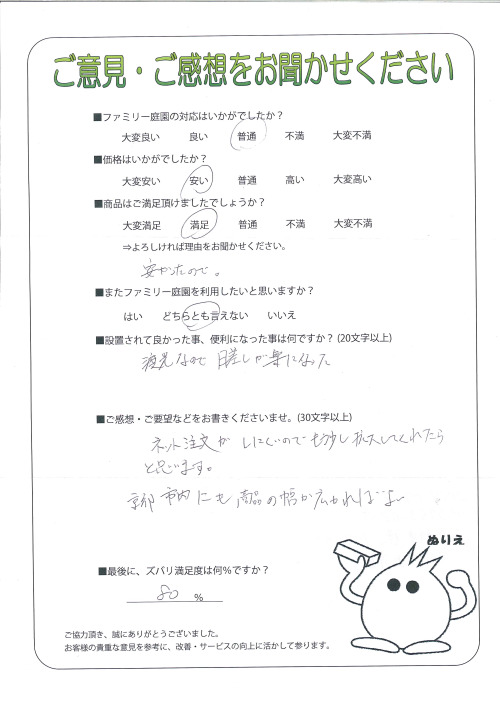 ご意見・ご感想をお聞かせください
■ファミリー庭園の対応はいかがでしたか？
大変良い 良い 普通 不満 大変不満
■価格はいかがでしたか？
大変安い 安い 普通 高い 大変高い
■商品はご満足頂けましたでしょうか？
大変満足 満足 普通 不満 大変不満
⇒よろしければ理由をお聞かせください。
安かったので。
■またファミリー庭園を利用したいと思いますか？
はい どちらとも言えない いいえ
■設置されて良かった事、便利になった事は何ですか？(20文字以上)
なので 日差しが楽になった
■ご感想・ご要望などをお書きくださいませ。(30文字以上)
ネット注文が しにくいので もう少し拡大してくれたら
と思います。
京都 市内にも 商品の幅が広がればよい
ぬりえ
■最後に、ズバリ満足度は何％ですか？
80 %
ご協力頂き、誠にありがとうございました。
お客様の貴重な意見を参考に、改善・サービスの向上に活かして参ります。